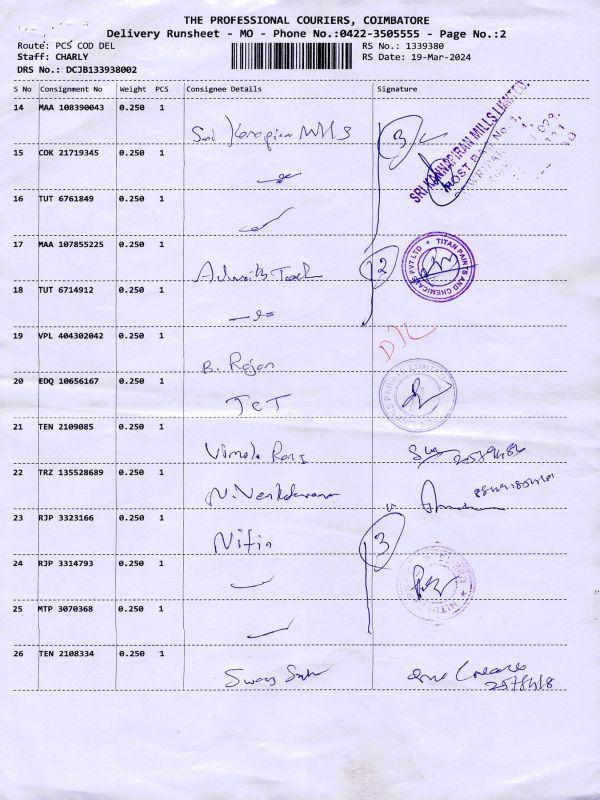 THE PROFESSIONAL COURIERS, COIMBATORE
Delivery Runsheet - MO - Phone No.:0422-3505555 - Page No.:2
Route: PCS COD DEL RS No.: 1339380
Staff: CHARLY RS Date: 19-Mar-2024
DRS No.: DCJB133938002
S No Consignment No Weight PCS Consignee Details Signature
14 MAA 108390043 0.250 1
SRI KANNAPIRAN MILLS LIMITED,
POST BAG No. 1,
Mills 3
15 COK 21719345 0.250 1
16 TUT 6761849 0.250 1
17 MAA 107855225 0.250 1
2 TITAN PAINTS AND CHEMICALS PVT LTD
18 TUT 6714912 0.250 1
19 VPL 404302042 0.250 1
D/L
B. Rajan
20 EDQ 10656167 0.250 1
PRIVATE LIMITED
JCT
21 TEN 2109085 0.250 1
Vimala Rani
22 TRZ 135528689 0.250 1
N.
23 RJP 3323166 0.250 1
Nitin 3
24 RJP 3314793 0.250 1
25 MTP 3070368 0.250 1
26 TEN 2108334 0.250 1